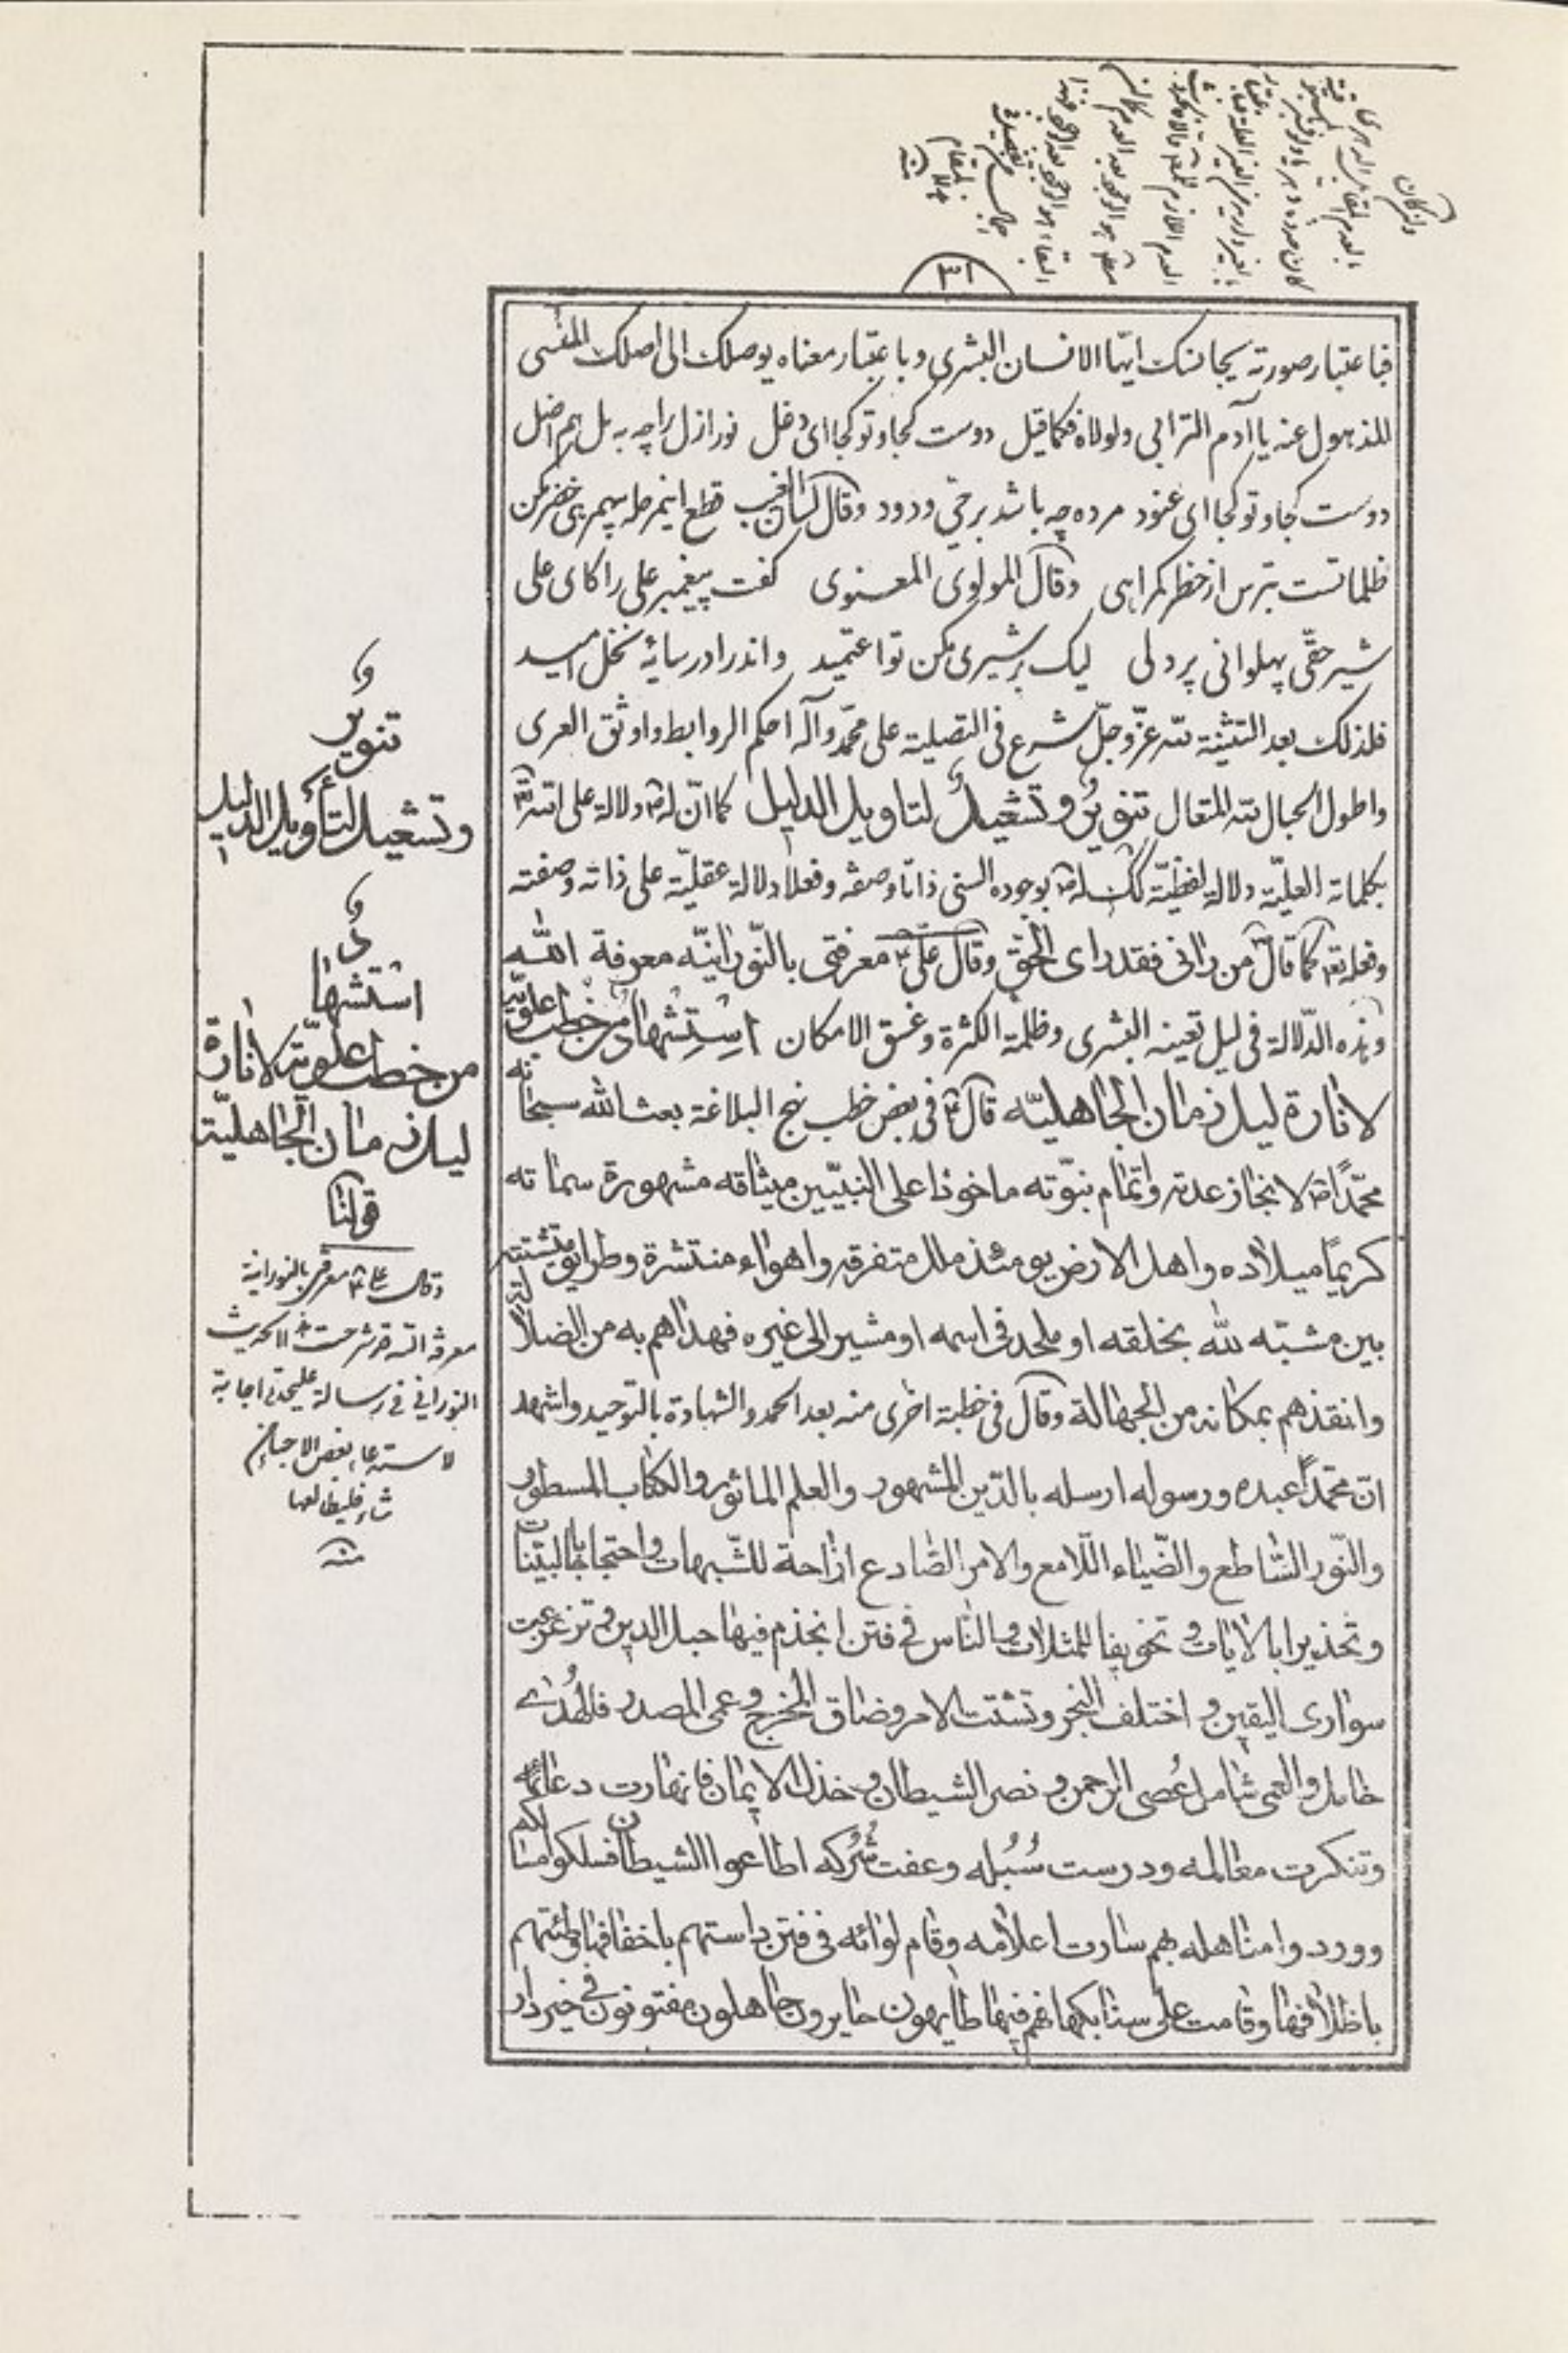 ٣١
فباعتبار صورته يجانسك ايّها الانسان البشرى وباعتبار معناه يوصلك الى اصلك المنسى
للذهول عنه يا آدم الترابى ولولاه فكما قيل دوست كجا و تو كجا اى دغل نور ازل را چه به بل هم اضل
دوست كجا و تو كجا اى عنود مرده چه باشد بر حىّ ودود وقال لسان الغيب قطع اينمرحله بيهمرهى خضر مكن
ظلماتست بترس از خطر گمراهى وقال المولوى المعنوى گفت پيغمبر على را كاى على
شير حقّى پهلوانى پر دلى ليك بر شيرى مكن تو اعتميد واندر ا در سايه نخل اميد
فلذلك بعد التثنية لله عزّ وجلّ شرع فى التصلية على محمّد وآله احكم الروابط واوثق العرى
واطول الحبال لله المتعال تنوير وتشعيل لتاويل الدليل كما انّ له ص دلالة على الله تعالى
بكلماته العليّة دلالة لفظيّة كك له ص بوجوده السنى ذاتا وصفة وفعلا دلالة عقليّة على ذاته وصفته
وفعله تعالى كما قال ص من رانى فقد راى الحق وقال على ع معرفتى بالنّورانيّه معرفة الله
وهذه الدّلالة فى ليل تعينه البشرى وظلمة الكثرة وغسق الامكان استشهاد من خطب علويّة
لانارة ليل زمان الجاهليّه قال ع فى بعض خطب نهج البلاغة بعث الله سبحانه
محمّدا ص لانجاز عدته واتمام نبوّته ماخوذا على النبيّين ميثاقه مشهورة سماته
كريما ميلاده واهل الارض يومئذ ملل متفرقه واهواء منتشرة وطرايق متشتته
بين مشبّه لله بخلقه او ملحد فى اسمه او مشير الى غيره فهداهم به من الضلالة
وانقذهم بمكانه من الجهالة وقال فى خطبة اخرى منه بعد الحمد والشهادة بالتوحيد واشهد
انّ محمّدا عبده ورسوله ارسله بالدّين المشهور والعلم الماثور والكتاب المسطور
والنّور السّاطع والضّياء اللّامع والامر الصّادع ازاحة للشّبهات واحتجاجا بالبيّنات
وتحذيرا بالايات وتخويفا للمثلات والنّاس فى فتن انجذم فيها حبل الدين وتزعزعت
سوارى اليقين واختلف النجر وتشتت الامر وضاق المخرج وعمى المصدر فالهُدى
خامل والعمى شامل عُصى الرحمن ونصر الشيطان وخذل الايمان فانهارت دعائمه
وتنكرت معالمه ودرست سُبُله وعفت شُرُكه اطاعوا الشيطان فسلكوا مسالكه
ووردوا مناهله بهم سارت اعلامه وقام لوائه فى فتن داستهم باخفافها ووطئتهم
باظلافها وقامت على سنابكها فهم فيها طايهون حايرون جاهلون مفتونون فى خير دار
تنوير
وتشعيل لتأويل الدليل
استشهاد
من خطب علويّة لانارة
ليل زمان الجاهليّة
قولنا
وقال على ع معرفتى بالنورانية
معرفة الله قد شرحت هذا الحديث
النورانى فى رسالة عليحدة اجابة
لاستدعاء بعض الاحباء
شاء فليطالعها
منه